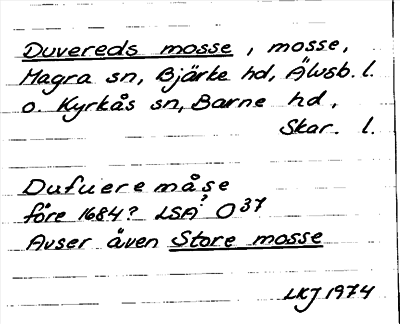 Duvereds mosse, mosse,
Magra sn, Bjärke hd, Älvsb. l.
o. Kyrkås sn, Barne hd,
Skar. l.
Dufuere måse
före 1684? LSA? O37
Avser även Store mosse
LKJ 1974